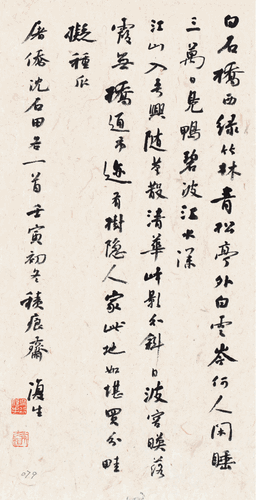 白石橋西綠竹林青松亭外白雲岑何人閑睡
三萬日見鴨碧波江水深
江山入吾興隨望散清華峰影分斜日波容暎落
霞無橋通市迹有樹隱人家此地如堪買分畦
擬種瓜
唐僑沈石田各一首壬寅初冬積痕齋
079